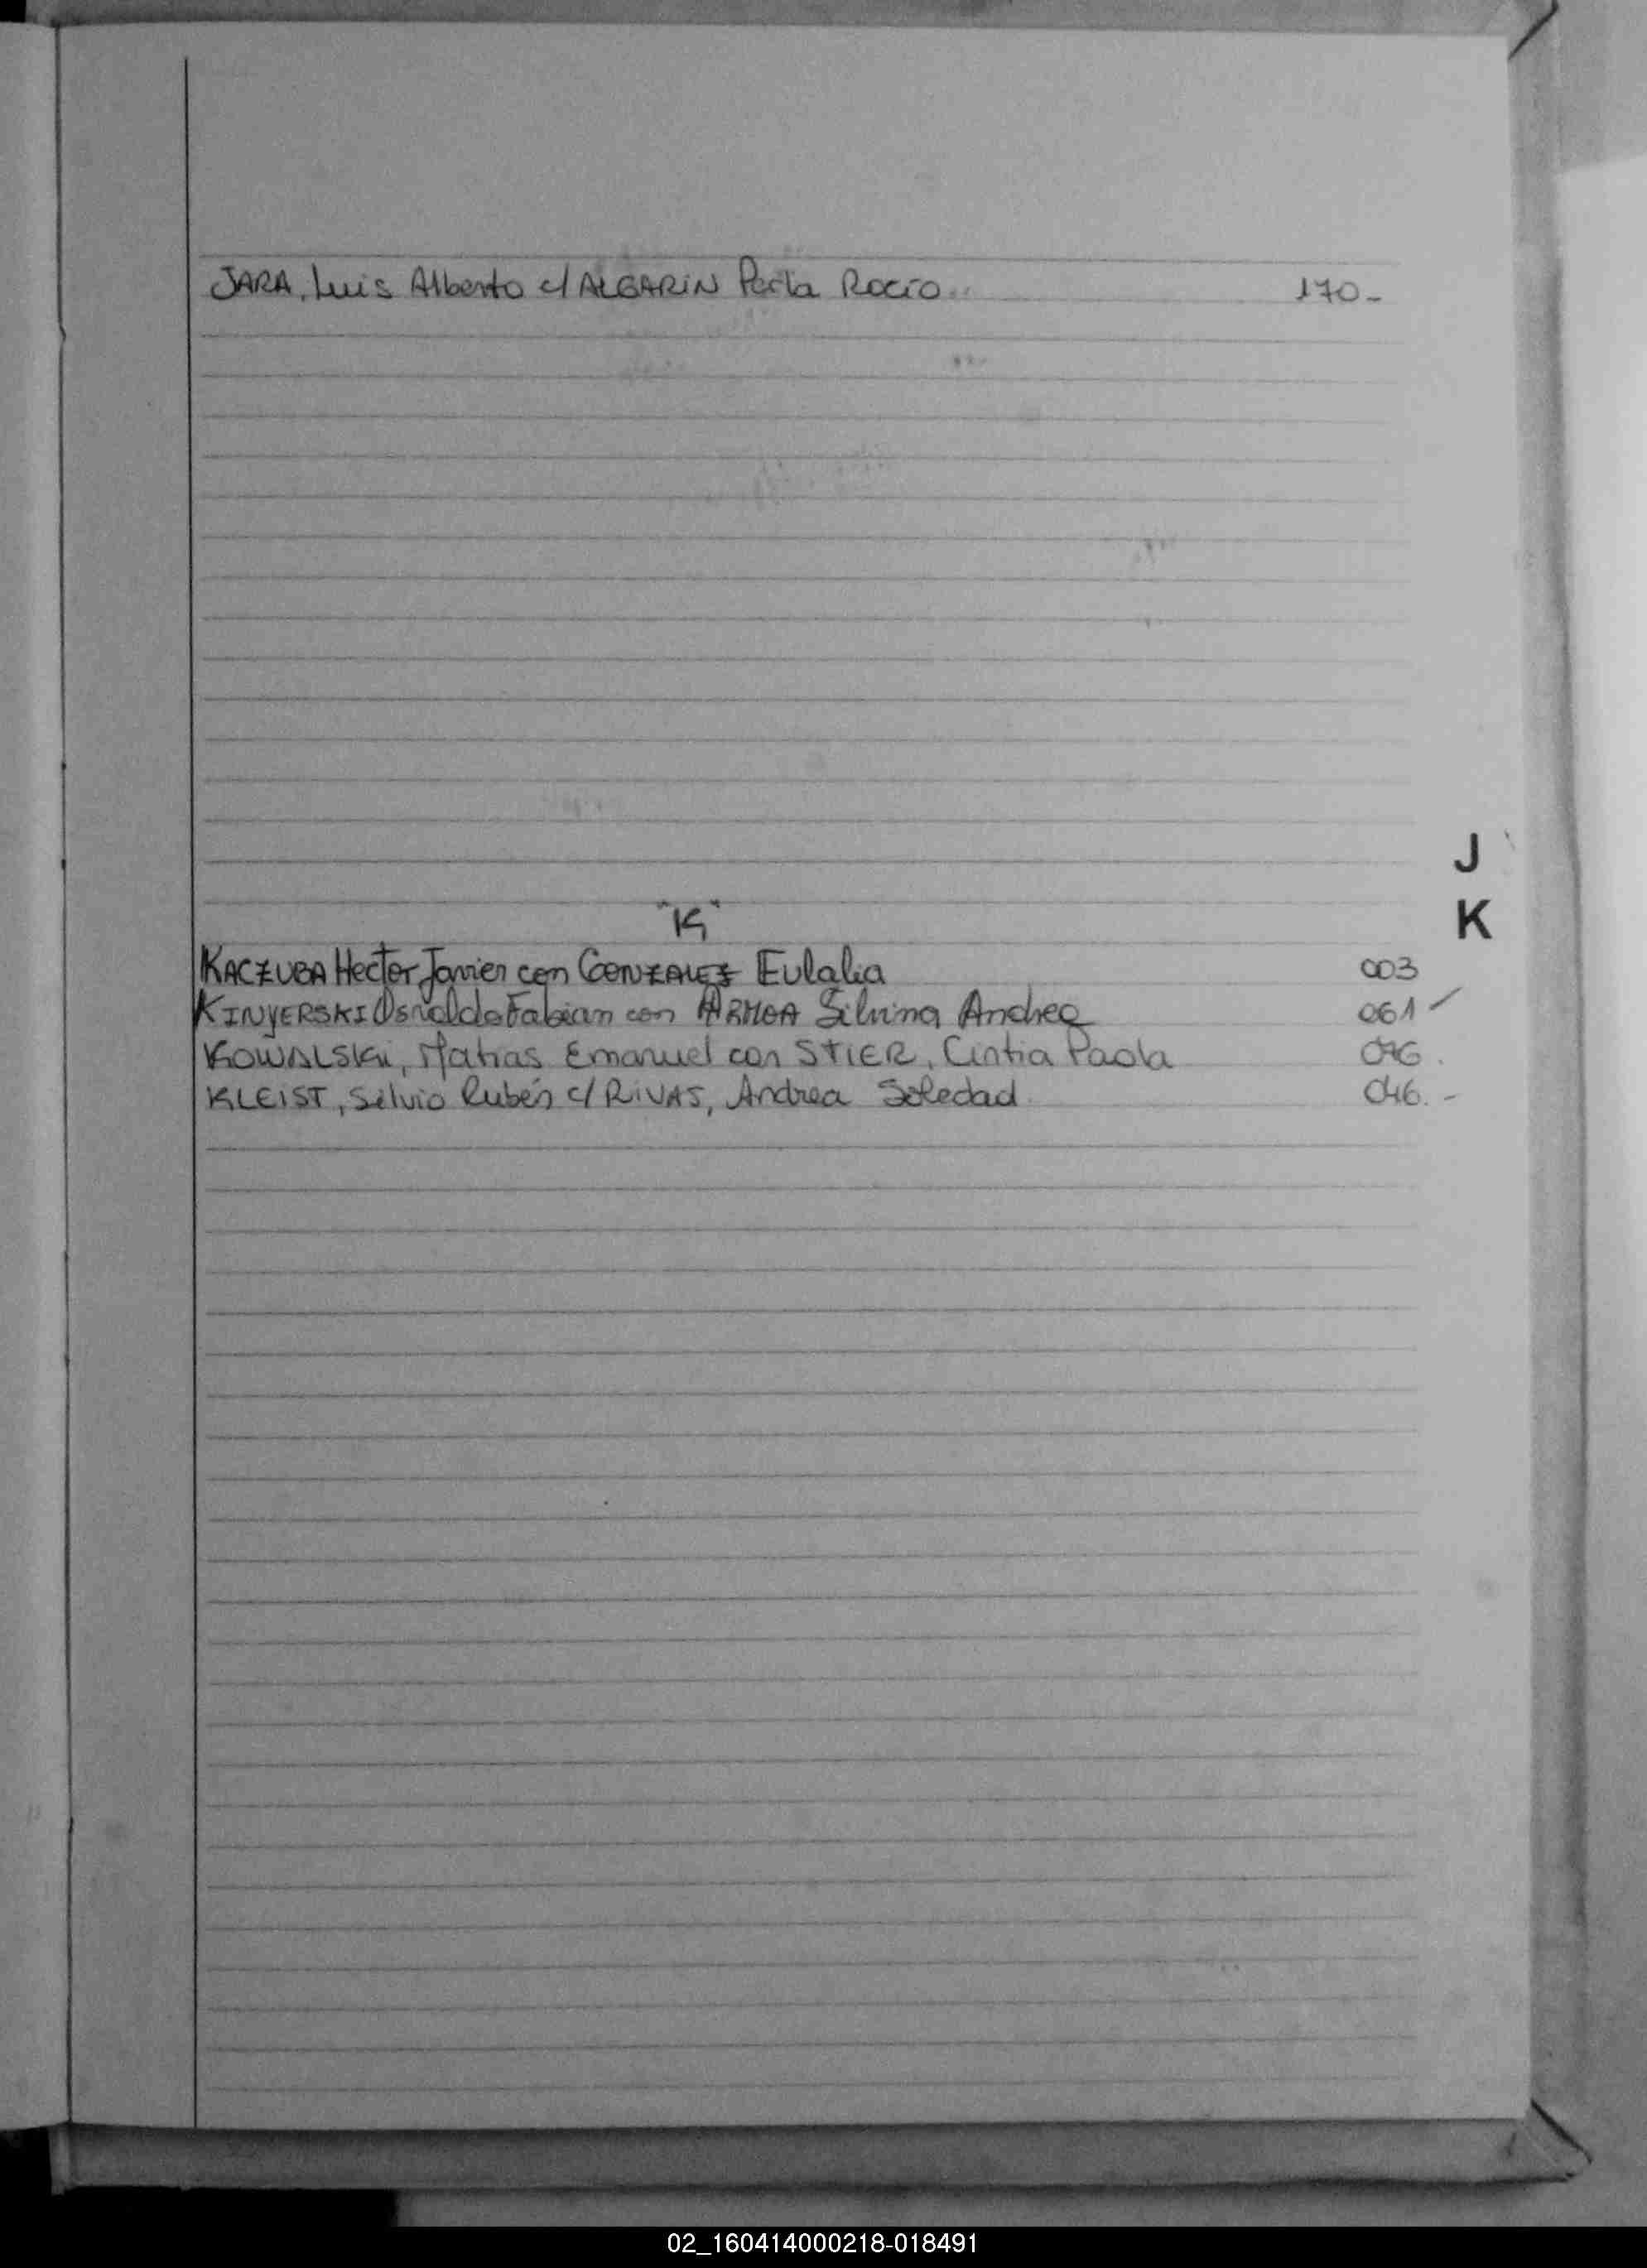 JARA, Luis Alberto c/ ALGARIN Perla Rocío 170-
J
K
"K"
KACZUBA Hector Javier con GONZALEZ Eulalia 003
KINYERSKI Osvaldo Fabian con ARMOA Silvina Andrea 061
KOWALSKI, Matias Emanuel con STIER, Cintia Paola 076.
KLEIST, Silvio Rubén c/ RIVAS, Andrea Soledad 046.-
02_160414000218-018491